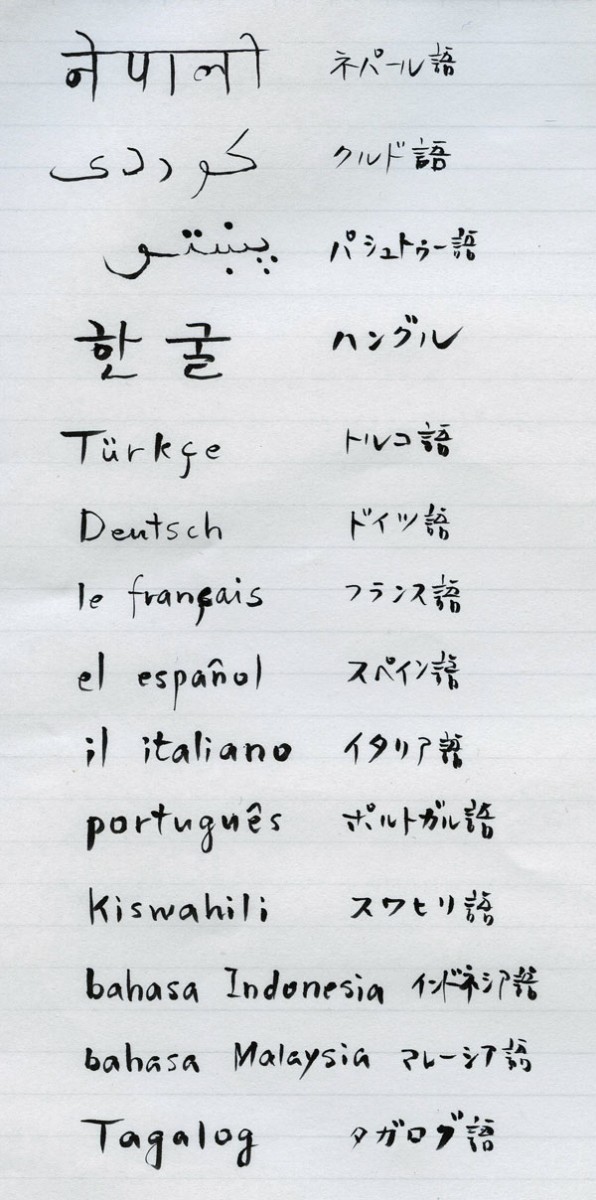 नेपाली ネパール語
کوردی クルド語
پښتو パシュトゥー語
한굴 ハングル
Türkçe トルコ語
Deutsch ドイツ語
le français フランス語
el español スペイン語
il italiano イタリア語
português ポルトガル語
kiswahili スワヒリ語
bahasa Indonesia インドネシア語
bahasa Malaysia マレーシア語
Tagalog タガログ語